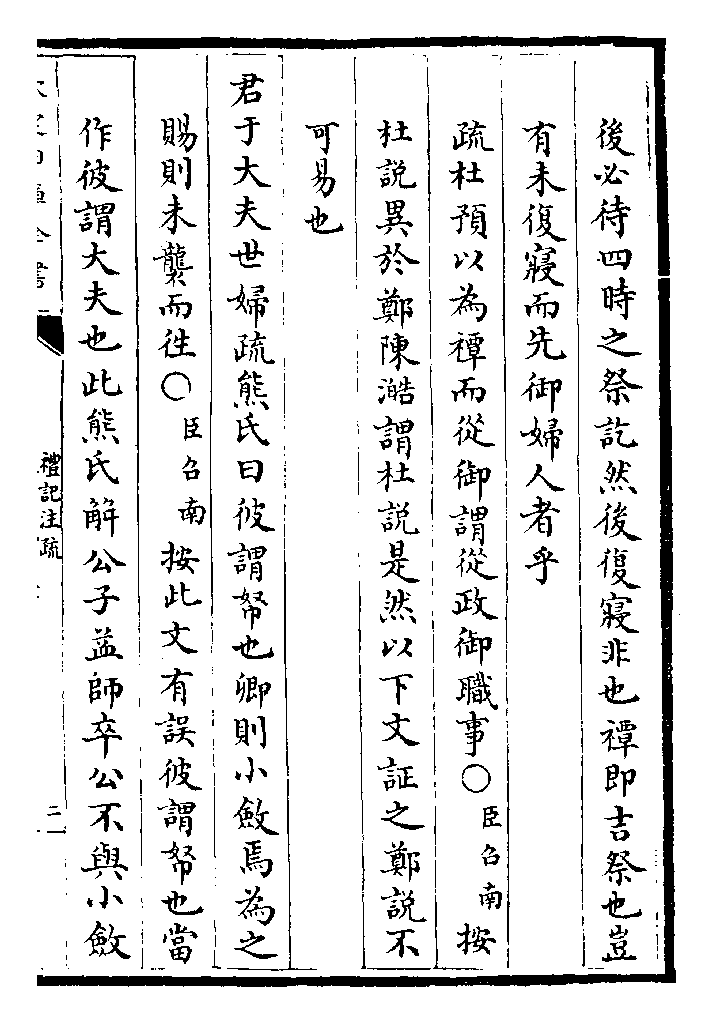 後必待四時之祭訖然後復寢非也禫即吉祭也豈
有未復寢而先御婦人者乎
疏杜預以為禫而從御謂從政御職事○臣召南按
杜説異於鄭陳澔謂杜説是然以下文証之鄭説不
可易也
君于大夫世婦疏熊氏曰彼謂帑也卿則小斂焉為之
賜則未襲而徃○臣召南按此文有誤彼謂帑也當
作彼謂大夫也此熊氏解公子益師卒公不與小斂
禮記注疏
二